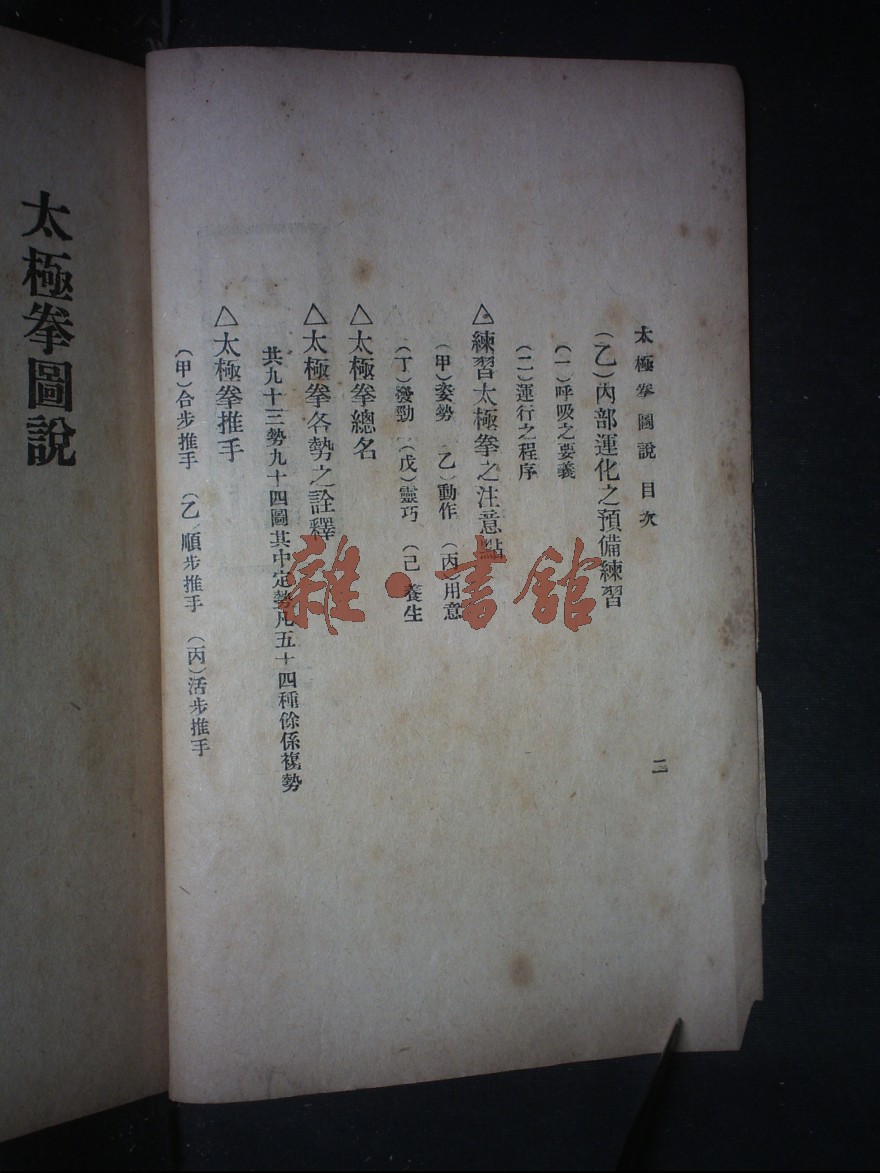 太極拳圖說 目次
二
（乙）內部運化之預備練習
（一）呼吸之要義
（二）運行之程序
△練習太極拳之注意點
（甲）姿勢 乙）動作 （丙）用意
（丁）發勁 （戊）靈巧 （己 養生
△太極拳總名
△太極拳各勢之詮釋
共九十三勢九十四圖其中定勢凡五十四種餘係複勢
△太極拳推手
（甲）合步推手 （乙 順步推手 （丙）活步推手
太極拳圖說
雜·書館